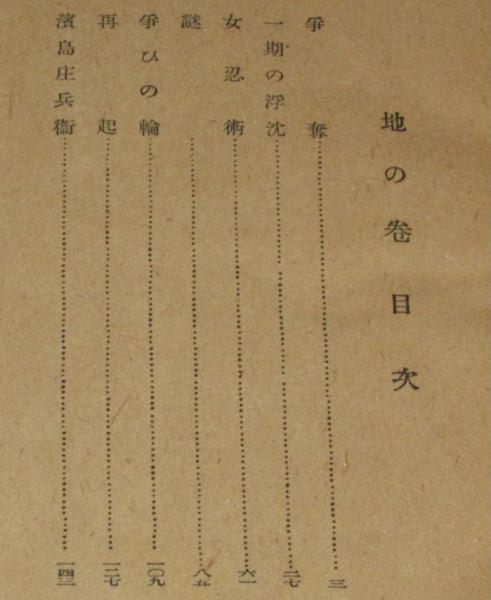 地の卷目次
爭奪……………………三
一期の浮沈……………………二七
女忍術……………………六一
謎……………………八五
爭ひの輪……………………一〇九
再起……………………一二七
濱島庄兵衞……………………一四三